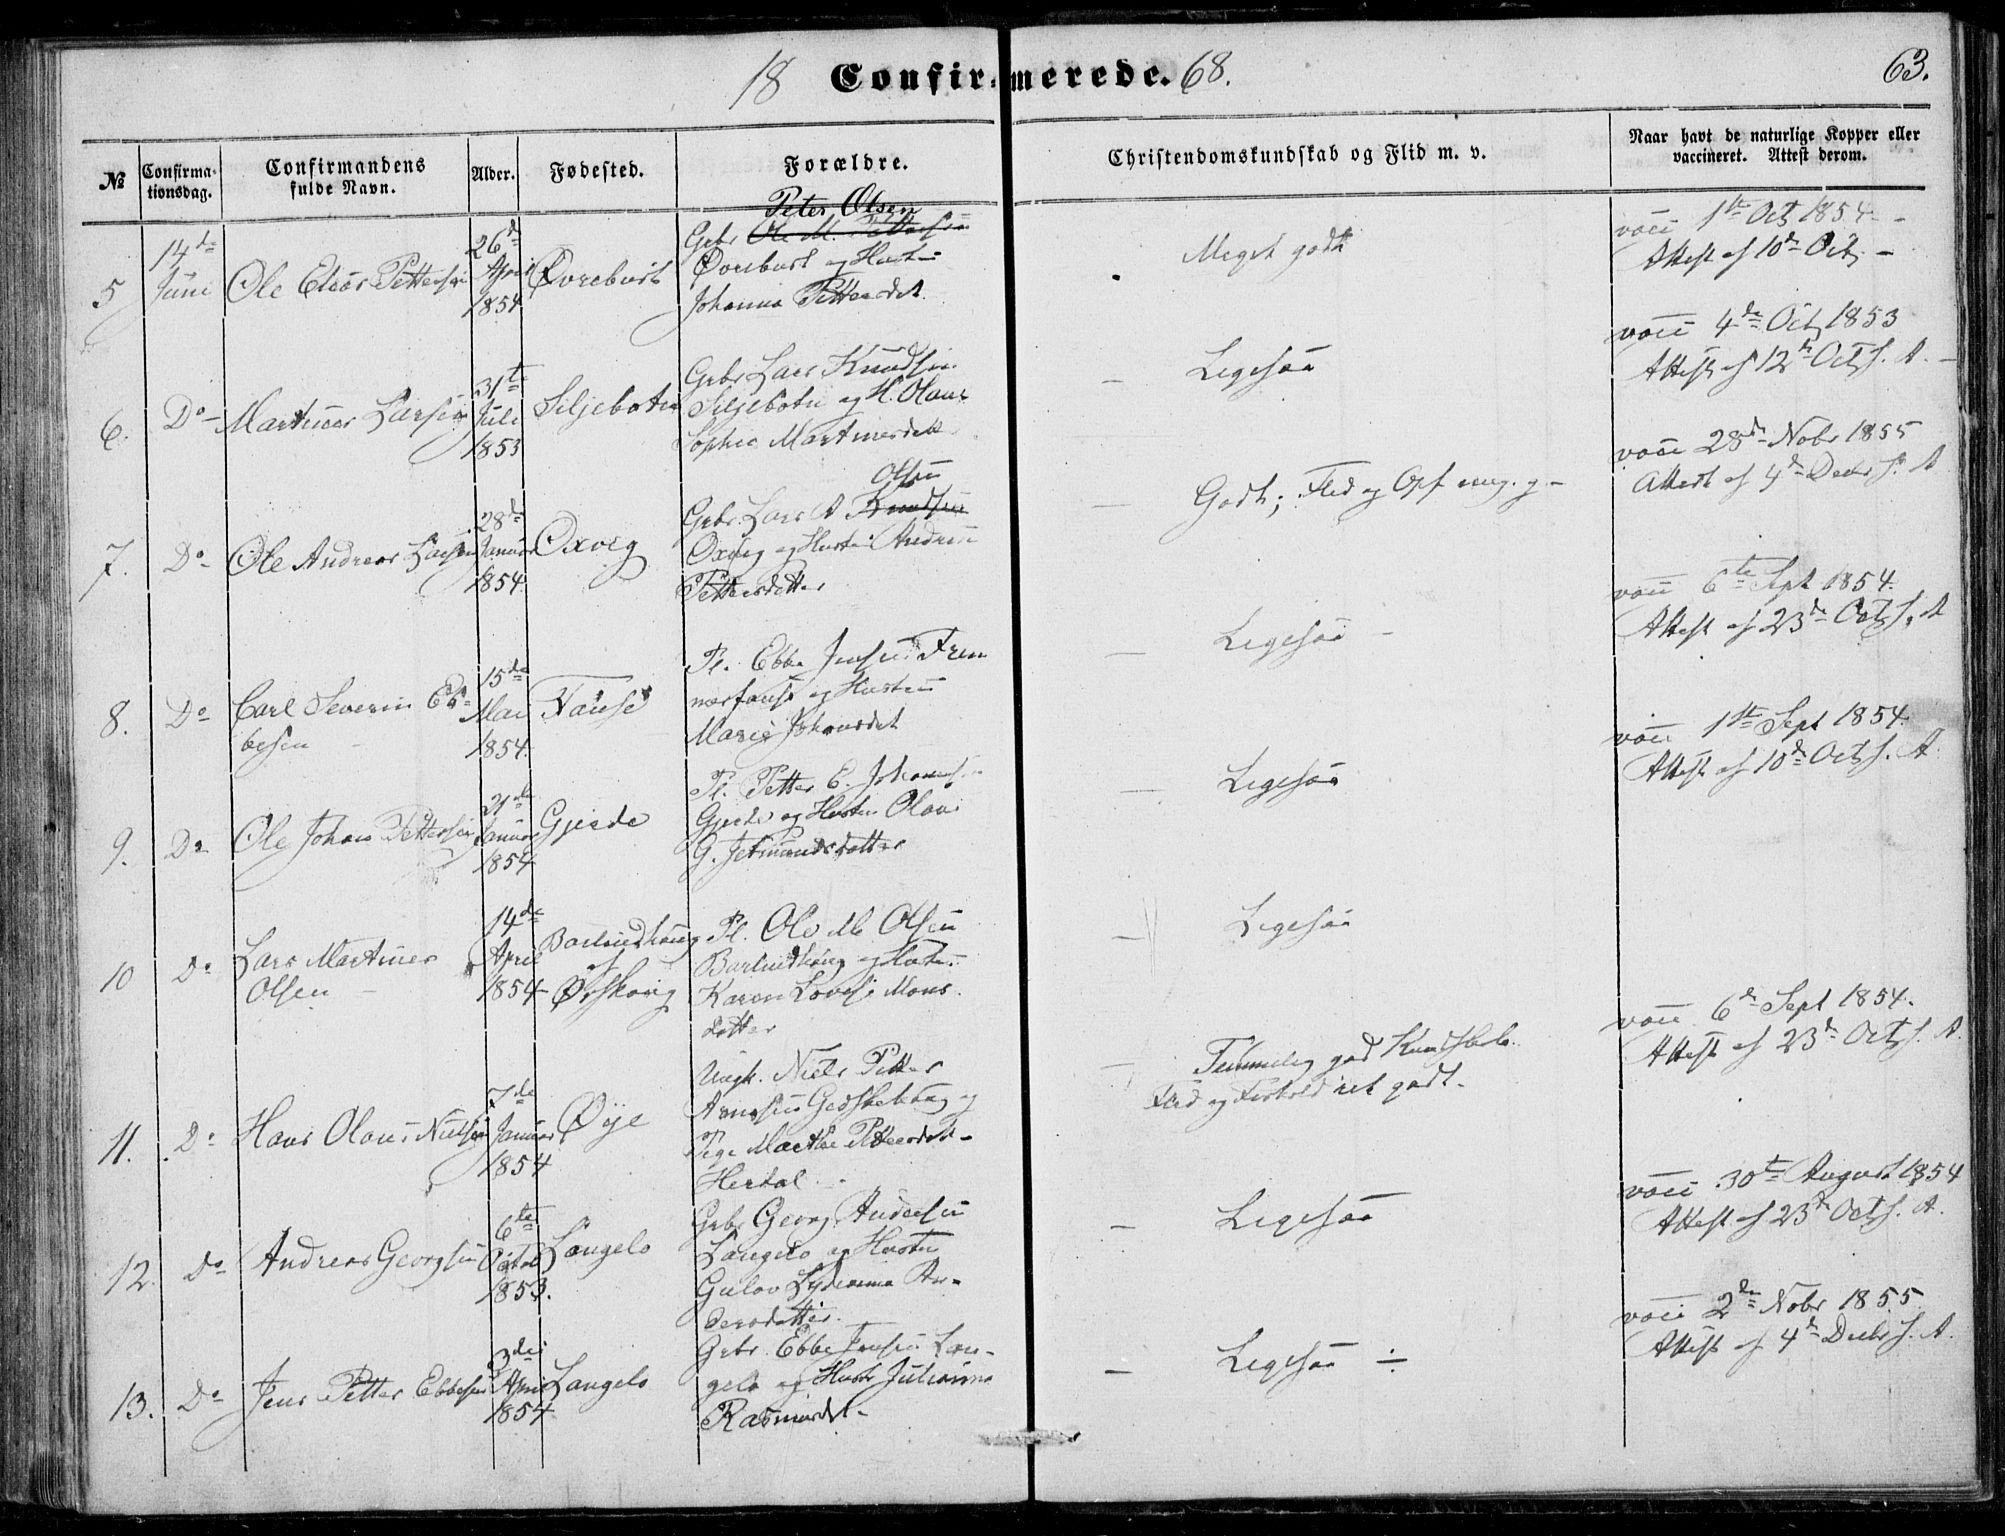 18 Confirmerede. 68.
63.
№
Confirmationsdag.
Confirmandens fulde Navn.
Alder.
Fødested.
Forældre.
Christendomskundskab og Flid m. v.
Naar havt de naturlige Kopper eller vaccineret. Attest derom.
5 14de Juni Ole Elias Pettersen 26de April 1854 Øvrebust
Peter Olsen
Gbr Ole M. Pettersen
Øvrebust og Hustru
Johanna Pettersdat.
Meget godt
vacc 1ste Oct 1854 -
Attest af 10de Oct. -
6. Do - Martinus Larsen 31te Juli 1853 Siljeboten
Gbr Lars Knudsen
Siljebotn og H. Olave
Sophie Martinusdatt
- Ligesaa
vacc 4de Oct 1853
Attest af 12te Oct s. A. -
7. Do Ole Andreas Larsen 28de Januar 1854. Oxvig
Olsen
Gbr. Lars A Knudsen
Oxvig og Hustru Andrea
Pettersdatter
- Godt; Flid og Opf meg. g -
vacc 28de Nobr 1855
Attest af 4de Decbr s. A
8. Do Carl Severin Ebbesen - 15de Mai 1854. Fause
Pl. Ebbe Jensen Frem
merfause og Hustru
Marie Johansdat
- Ligesaa -
vacc 6te Sept 1854.
Attest af 23de Oct s. A
9. Do Ole Johan Pettersen 21de Januar 1854 Gjerde
Pl. Petter E. Johannes
Gjerde og Hustru Olave
G. Jetmundsdatter
- Ligesaa
vacc 1ste Sept 1854.
Attest af 10de Oct s. A.
10 Do Lars Martinus Olsen - 14de April 1854 af Ørskoug
Pl. Ole M Olsen
og Hustr.
Karen Lovise Mons
datter
- Ligesaa
11. Do Hans Olaus Nielsen 7de Januar 1854 Øye
Ungk. Niels Petter
og
Pige Marthe Pettersdat -
- Temmelig god Kundskab.
Flid og Forhold ret godt.
vacc 6te Sept 1854.
Attest af 23de Oct s. A.
12. Do Andreas Georgsen 6te Octob 1853. Langelo
Gbr Georg Andersen
Langelo og Hustru
Gulov An-
dersdatter.
- Ligesaa
vacc 30te August 1854
Attest af 23de Oct s. A.
13. Do Jens Petter Ebbesen 3die April 1854. Langelo
Gbr. Ebbe Jensen Lan-
gelo og Hustr Julianna
Rasmusdt -
- Ligesaa ÷
vacc 2den Nobr 1855.
Attest af 4de Decbr s. A.